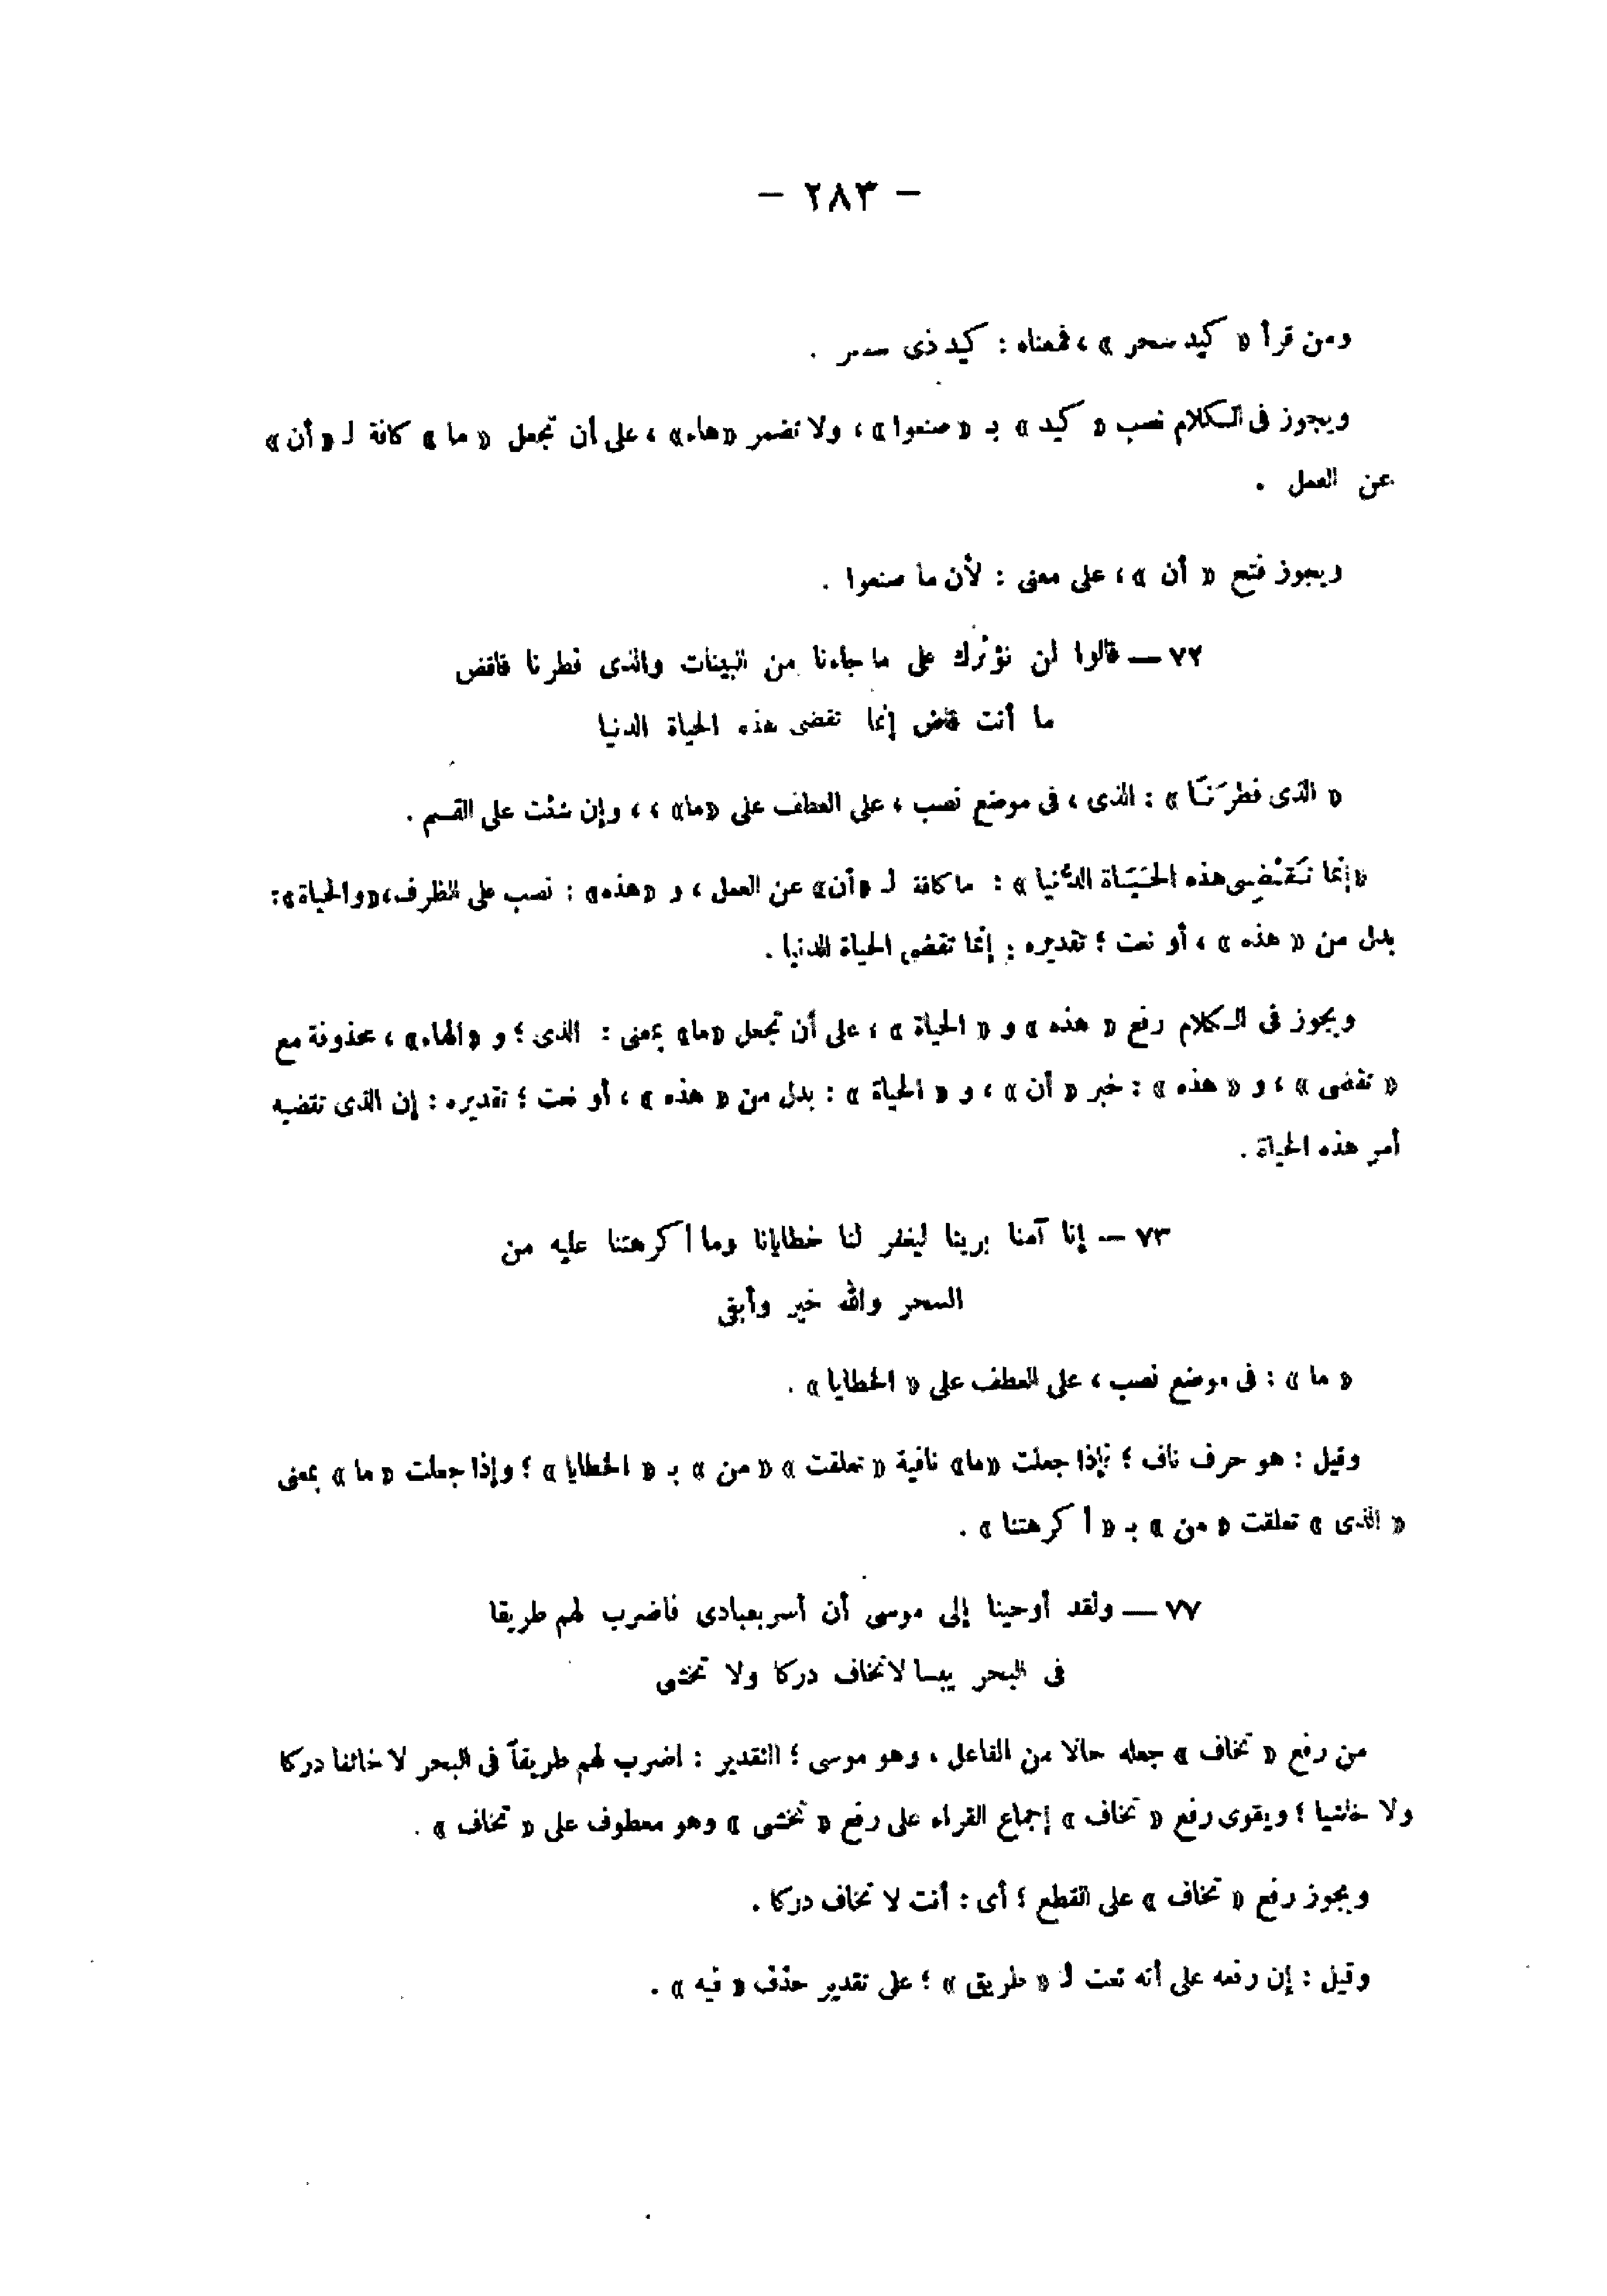 — ٢٨٣ —
ومن قرأ « كيد سحر » ، فمعناه : كيد ذى سحر .
ويجوز فى الكلام نصب « كيد » بـ « صنعوا » ، ولا تضمر «هاء» ، على أن تجعل « ما » كافة لـ « أن »
عن العمل .
ويجوز فتح « أن » ، على معنى : لأن ما صنعوا .
٧٢ — قالوا لن نؤثرك على ما جاءنا من البينات والذى فطرنا فاقض
ما أنت قاض إنما تقضى هذه الحياة الدنيا
« الذى فطرَنَا » : الذى ، فى موضع نصب ، على العطف على «ما» ، ، وإن شئت على القسم .
«إنَّما تَقْضِى هذه الحَيَاة الدُّنيا » : ما كافة لـ «أن» عن العمل ، و «هذه» : نصب على الظرف، «والحياة»:
بدل من « هذه » ، أو نعت ؛ تقديره : إنما تقضى الحياة الدنيا .
ويجوز فى الكلام رفع « هذه » و « الحياة » ، على أن تجعل «ما» بمعنى : الذى ؛ و «الهاء» ، محذوفة مع
« تقضى » ، و « هذه » : خبر « أن » ، و « الحياة » : بدل من « هذه » ، أو نعت ؛ تقديره : إن الذى تقضيه
أمر هذه الحياة .
٧٣ — إنا آمنا بربنا ليغفر لنا خطايانا وما أكرهتنا عليه من
السحر والله خير وأبقى
« ما » : فى موضع نصب ، على العطف على « الخطايا » .
وقيل : هو حرف ناف ؛ فإذا جعلت «ما» نافية « تعلقت » « من » بـ « الخطايا » ؛ وإذا جعلت « ما » بمعنى
« الذى » تعلقت « من » بـ « أكرهتنا » .
٧٧ — ولقد أوحينا إلى موسى أن أسر بعبادى فاضرب لهم طريقا
فى البحر يبسا لا تخاف دركا ولا تخشى
من رفع « تخاف » جعله حالا من الفاعل ، وهو موسى ؛ التقدير : اضرب لهم طريقاً فى البحر لا خائفا دركا
ولا خاشيا ؛ ويقوى رفع « تخاف » إجماع القراء على رفع « تخشى » وهو معطوف على « تخاف » .
ويجوز رفع « تخاف » على القطع ؛ أى : أنت لا تخاف دركا .
وقيل : إن رفعه على أنه نعت لـ « طريق » ؛ على تقدير حذف « فيه » .